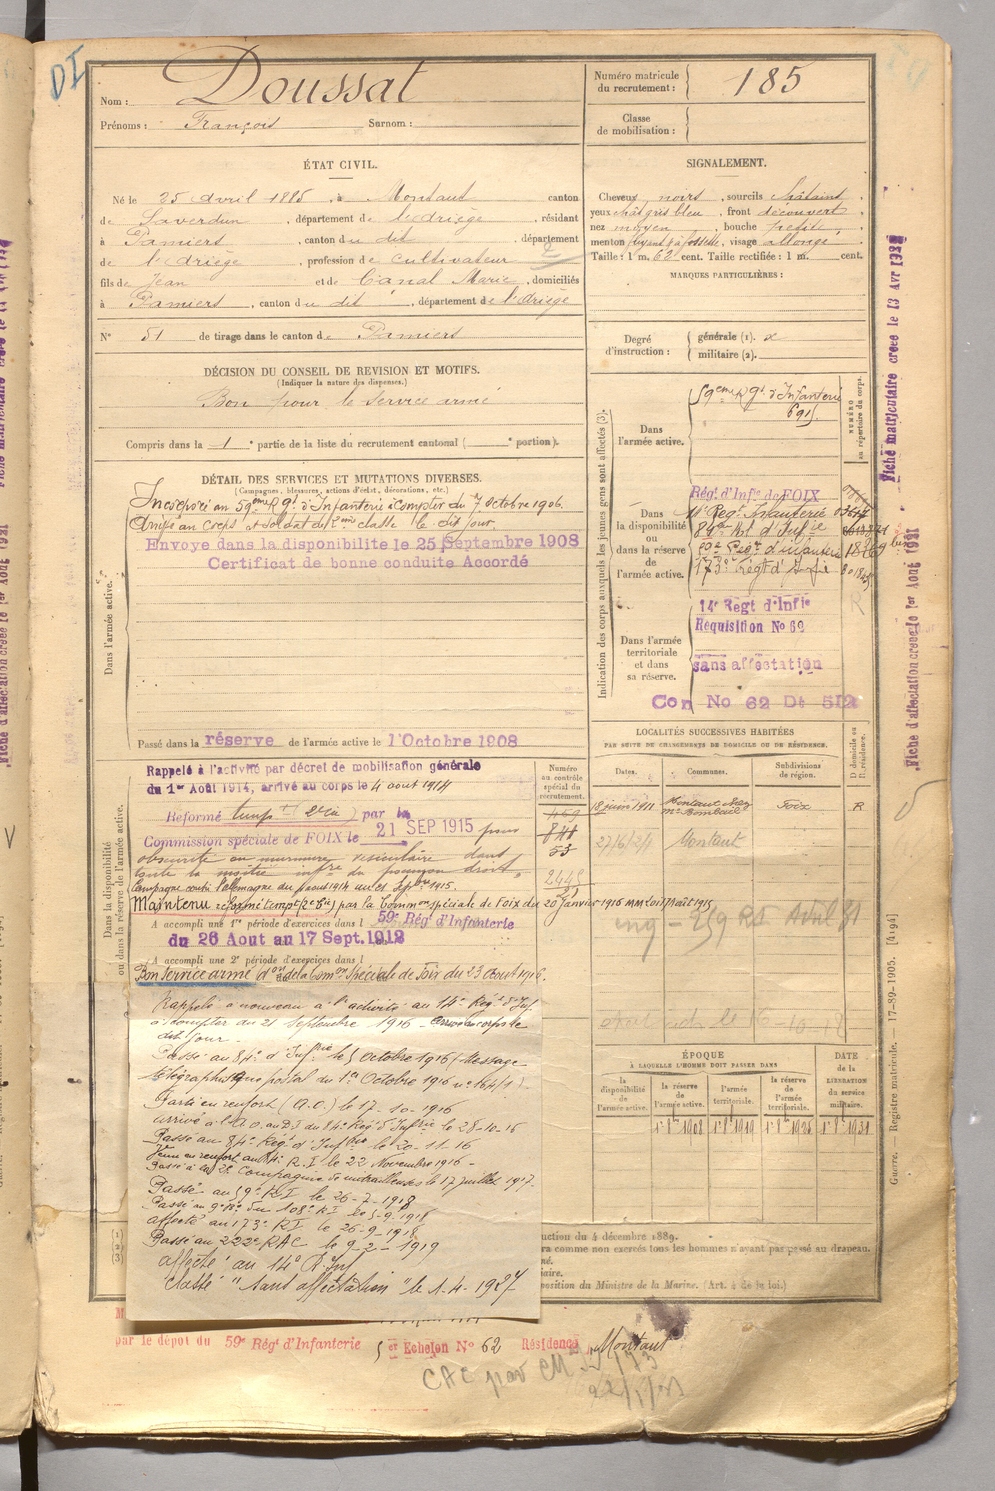 DI
Nom : Doussat
Prénoms : François Surnom :
Numéro matricule du recrutement : 185
Classe de mobilisation :
ÉTAT CIVIL.
Né le 25 avril 1885, à Montaut canton
de Saverdun, département de l'Ariège, résidant
à Pamiers, canton du dit, département
de l'Ariège, profession de cultivateur
fils de Jean et de Canal Marie, domiciliés
à Pamiers, canton du dit, département de l'Ariège
N° 51 de tirage dans le canton de Pamiers
SIGNALEMENT.
Cheveux noirs, sourcils châtains
yeux chât gris bleu, front découvert
nez moyen, bouche petite,
menton fuyant à fossette, visage allongé,
Taille : 1 m. 62 cent. Taille rectifiée : 1 m. cent.
MARQUES PARTICULIÈRES :
Degré d'instruction :
générale (1). x
militaire (2).
DÉCISION DU CONSEIL DE REVISION ET MOTIFS.
(Indiquer la nature des dispenses.)
Bon pour le service armé
Compris dans la 1e partie de la liste du recrutement cantonal ( e portion).
DÉTAIL DES SERVICES ET MUTATIONS DIVERSES.
(Campagnes, blessures, actions d'éclat, décorations, etc.)
Dans l'armée active.
Incorporé au 59eme Rgt d'Infanterie à compter du 7 octobre 1906.
Arrivé au corps et soldat de 2eme classe le dit jour.
Envoye dans la disponibilite le 25 Septembre 1908
Certificat de bonne conduite Accordé
Passé dans la réserve de l'armée active le 1 Octobre 1908
Dans la disponibilité ou dans la réserve de l'armée active.
Rappelé à l'activité par décret de mobilisation générale
du 1er Août 1914, arrivé au corps le 4 aout 1914
Réformé temp par la
Commission spéciale de FOIX le 21 SEP 1915 pour
obscurité au murmure vésiculaire dans
toute la moitié infre du poumon droit.
Campagne contre l'Allemagne du 4 aout 1914 au 21 Sepbre 1915.
Maintenu réformé tempre (2e Cie) par la Common spéciale de Foix du 20 Janvier 1916 MM Loi 17 août 1915
A accompli une 1re période d'exercices dans l 59e Rég d'Infanterie
du 26 Aout au 17 Sept. 1912
A accompli une 2e période d'exercices dans l
Bon Service armé don de la Comon Spéciale de Foix du 23 août 1916.
Rappelé à nouveau à l'activité au 14e Régt d'Inf.
à compter du 21 Septembre 1916 - arrivé au corps le
dit jour.
Passé au 84e d'Infrie le 5 Octobre 1916 (Message
télégraphique postal du 1er Octobre 1916 n° 1641).
Parti en renfort (A.O.) le 17-10-1916
arrivé à l'A.O. au D.J. du 84e Régt d'Infrie le 28-10-16
Passé au 84e Régt d'Inftrie le 20-11-16
Venu en renfort au 84e R.I le 22 Novembre 1916 -
Passé à la 2e Compagnie de mitrailleuses le 17 juillet 1917.
Passé au 59e R.I le 26-7-1918
Passé au 9e Bon du 108e R.I le 5-9-1918
affecté au 173e R.I le 26-9-1918
Passé au 222e RAC le 9-2-1919
affecté au 14e R. Inf
Classé "sans affectation" le 1-4-1927
Indication des corps auxquels les jeunes gens sont affectés (3).
NUMÉRO au répertoire du corps.
Dans l'armée active.
59eme Rgt d'Infanterie
6915
Dans la disponibilité ou dans la réserve de l'armée active.
Rég. d'Infie de FOIX
173e Régt d'Infie
Dans l'armée territoriale et dans sa réserve.
14e Regt d'Infie
Requisition No 62
sans affectation
Con No 62 Dt 512
LOCALITÉS SUCCESSIVES HABITÉES
PAR SUITE DE CHANGEMENTS DE DOMICILE OU DE RÉSIDENCE.
Numéro au contrôle spécial du recrutement.
Dates. Communes. Subdivisions de région. D domicile ou R résidence.
469
848
53
18 juin 1911 Foix R
Montaut
ÉPOQUE
À LAQUELLE L'HOMME DOIT PASSER DANS
la disponibilité de l'armée active.
la réserve de l'armée active.
l'armée territoriale.
la réserve de l'armée territoriale.
DATE de la LIBÉRATION du service militaire.
1er 8bre 1908 1er 8bre 1919 1er 8bre 1925 1er 8bre 1931
uction du 4 décembre 1889.
ra comme non exercés tous les hommes n'ayant pas passé au drapeau.
position du Ministre de la Marine. (Art. 4 de la loi.)
par le dépôt du 59e Régt d'Infanterie 5 er Echelon N° 62 Résidence Montaut
Fiche matriculaire creee le 13 Avr 193
Fiche d'affectation creee le 1er Août 1921
Guerre. — Registre matricule. — 17-89-1905. [4194]